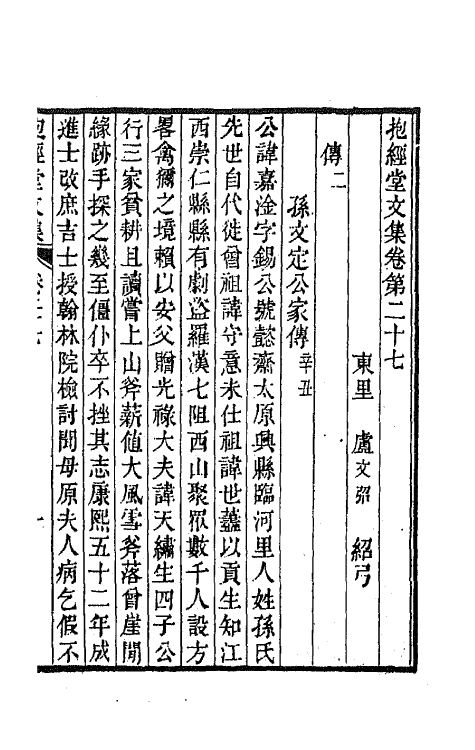 抱經堂文集卷第二十七
東里 盧文弨 紹弓
傳二
孫文定公家傳辛丑
公諱嘉淦字錫公號懿齋太原興縣臨河里人姓孫氏
先世自代徙曾祖諱守意未仕祖諱世蓋以貢生知江
西崇仁縣縣有劇盜羅漢七阻西山聚眾數千人設方
畧禽獮之境賴以安父贈光祿大夫諱天繡生四子公
行三家貧耕且讀嘗上山斧薪值大風雪斧落曾崖閒
緣跡手探之幾至僵仆卒不挫其志康熙五十二年成
進士改庶吉士授翰林院檢討聞母原夫人病乞假不
抱經堂文集 卷二十七 一